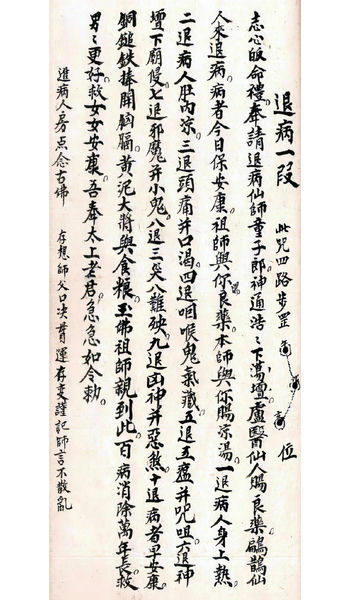 退病一段 此咒四路步罡 位
志心皈命禮奉請退病仙師童子郎神通浩ミ下蕩壇盧醫仙人賜良藥鶣鵲仙
人來退病病者今日保安康祖師與你賜良藥本師與你賜凉湯一退病人身上熱
二退病人肚内凉三退頭痛并口渴四退咽喉鬼氣藏五退五瘟并咒咀六退神
壇下廟侵七退邪魔并小鬼八退三災八難殃九退凶神并惡煞十退病者早安康
銅鎚鉄捧開胸膈黄泥大將與食粮玉佛祖師親到此百病消除萬年長救
男ミ更好救女女安康吾奉太上老君急急如令勅
進病人房点念古佛 存想師父口决貫運存变謹記師言不散乱